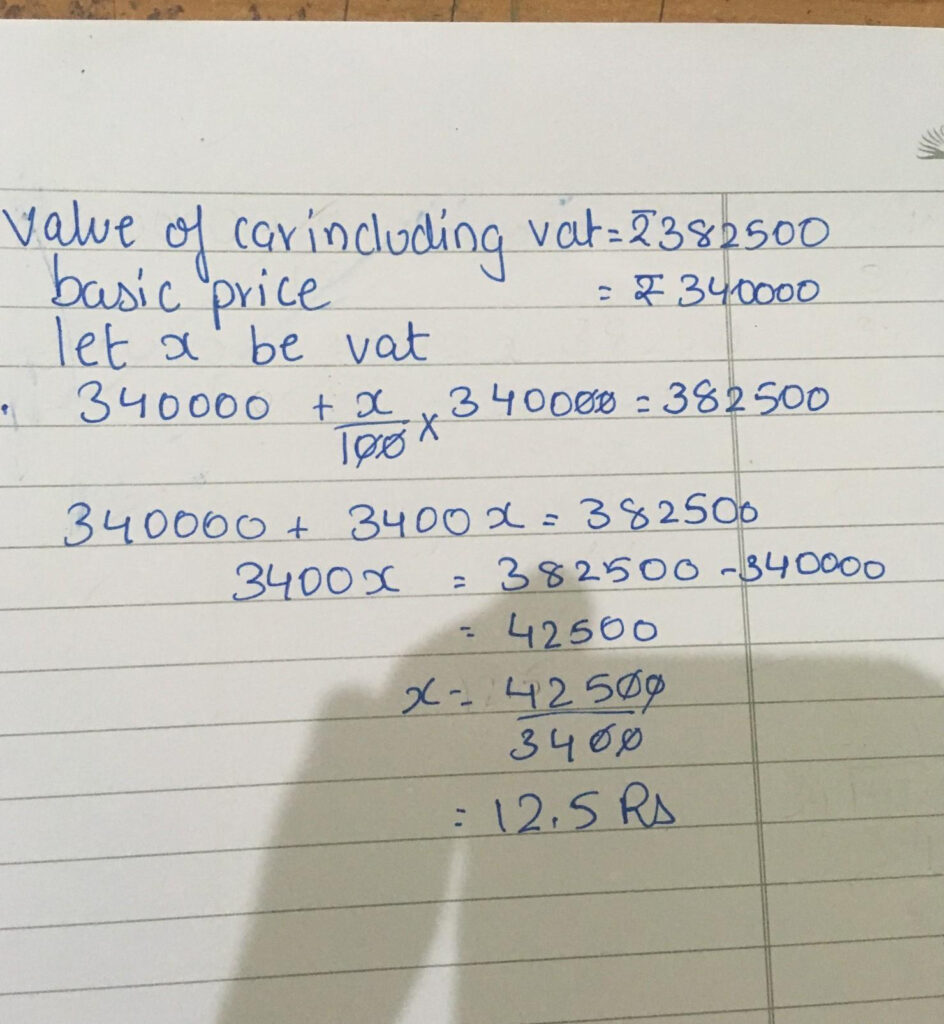 value of car including vat = ₹382500
basic price = ₹ 340000
let x be vat
. 340000 + x/100 × 340000 = 382500
340000 + 3400x = 382500
3400x = 382500 - 340000
= 42500
x = 42500/3400
= 12.5 Rs